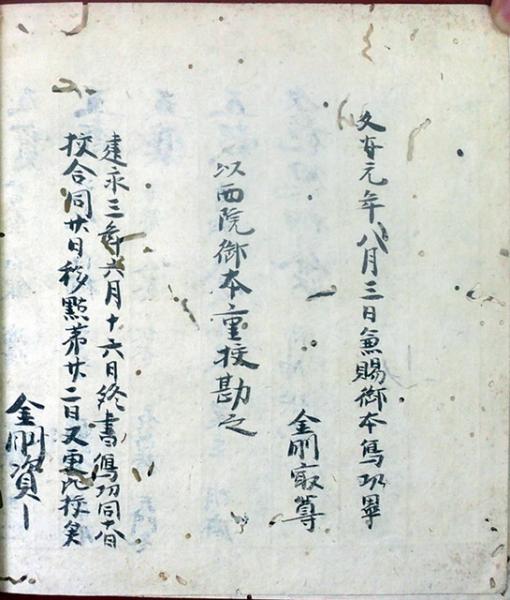 文存元年八月三日兼賜御本寫功畢
金剛寂尊
以西院御本重挍勘之
建永三年六月十六日終書寫功同日
挍合同廿日移點第廿二日又更比挍矣
金剛資